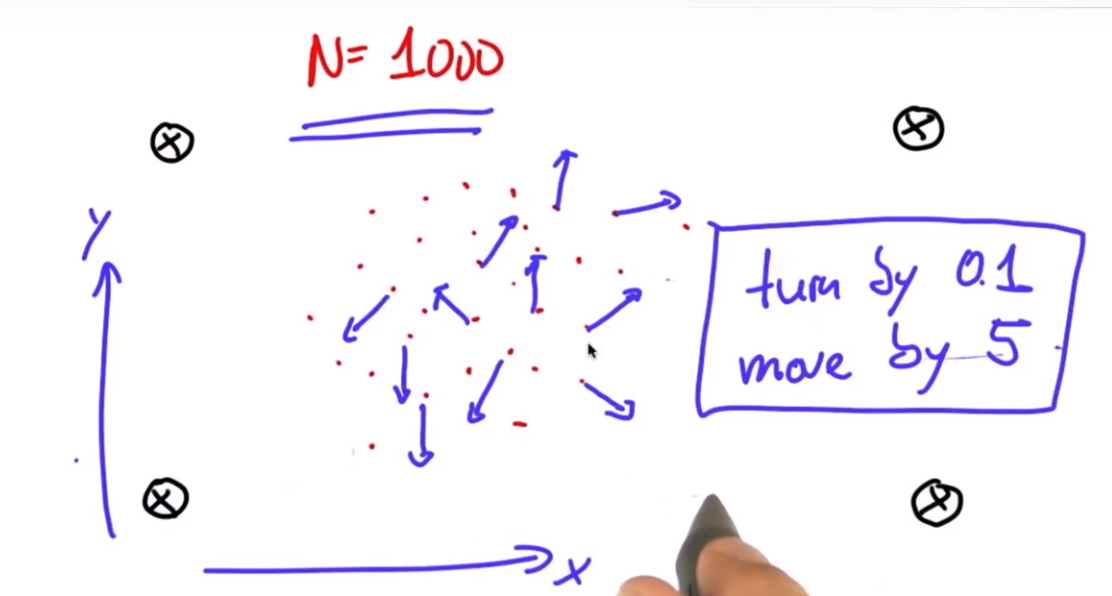 N= 1000
Y
turn by 0.1
move by 5
X